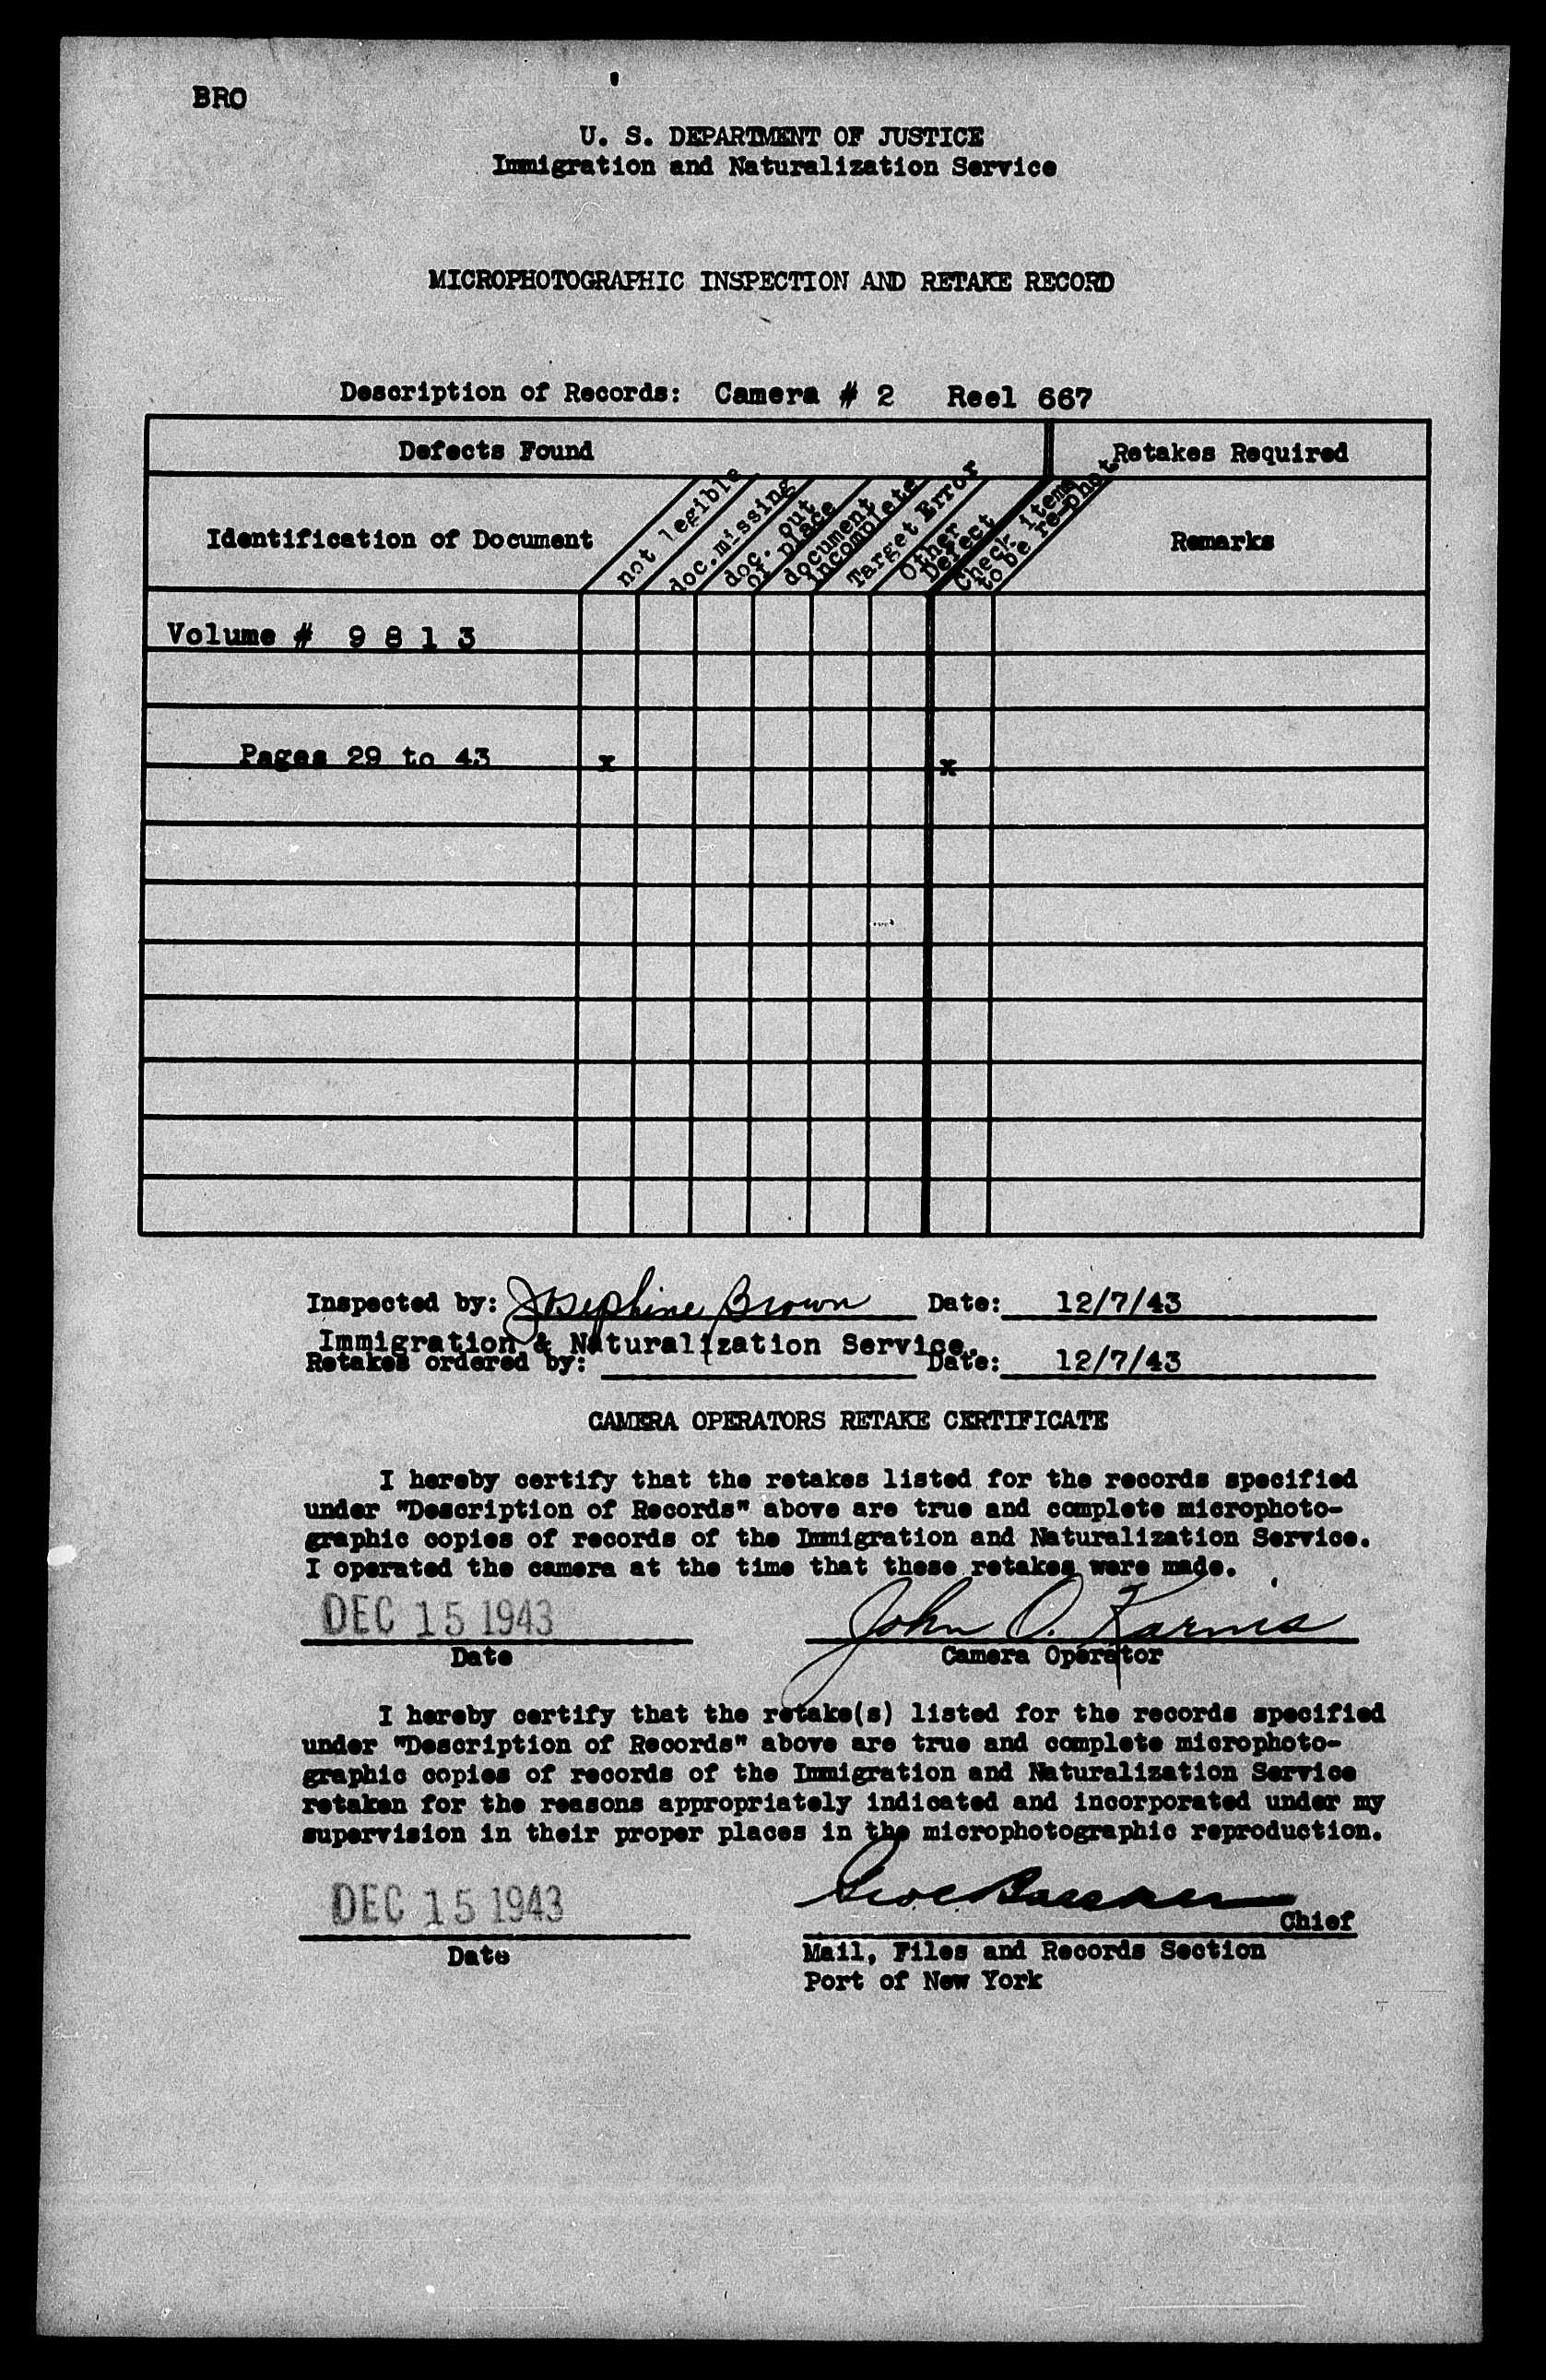 BRO
U. S. DEPARTMENT OF JUSTICE
Immigration and Naturalization Service
MICROPHOTOGRAPHIC INSPECTION AND RETAKE RECORD
Description of Records: Camera # 2 Reel 667
Defects Found
Retakes Required
Identification of Document
not legible
doc. missing
doc. out
of place
document
incomplete
Target Error
Other
Defect
Check items
to be re-phot
Remarks
Volume # 9 8 1 3
Pages 29 to 43 x x
Inspected by: Josephine Brown Date: 12/7/43
Immigration & Naturalization Service.
Retakes ordered by: Date: 12/7/43
CAMERA OPERATORS RETAKE CERTIFICATE
I hereby certify that the retakes listed for the records specified
under "Description of Records" above are true and complete microphoto-
graphic copies of records of the Immigration and Naturalization Service.
I operated the camera at the time that these retakes were made.
DEC 15 1943 John O. Karnis
Date Camera Operator
I hereby certify that the retake(s) listed for the records specified
under "Description of Records" above are true and complete microphoto-
graphic copies of records of the Immigration and Naturalization Service
retaken for the reasons appropriately indicated and incorporated under my
supervision in their proper places in the microphotographic reproduction.
DEC 15 1943
Chief
Date
Mail, Files and Records Section
Port of New York